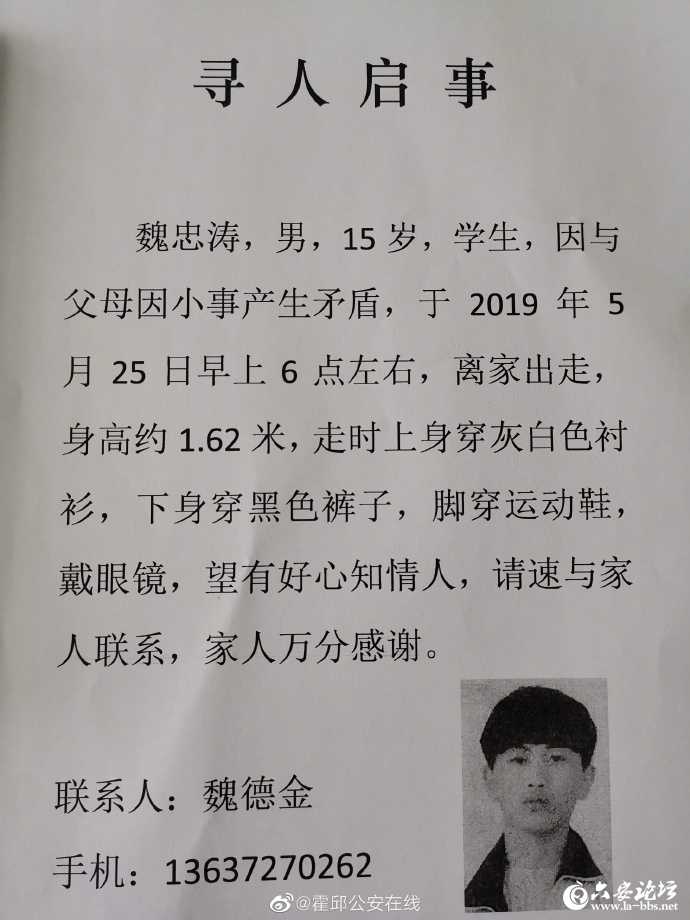 寻人启事
魏忠涛，男，15岁，学生，因与
父母因小事产生矛盾，于 2019 年 5
月 25 日早上 6 点左右，离家出走，
身高约 1.62 米，走时上身穿灰白色衬
衫，下身穿黑色裤子，脚穿运动鞋，
戴眼镜，望有好心知情人，请速与家
人联系，家人万分感谢。
联系人：魏德金
手机：13637270262
@霍邱公安在线
六安论坛
www.la-bbs.net